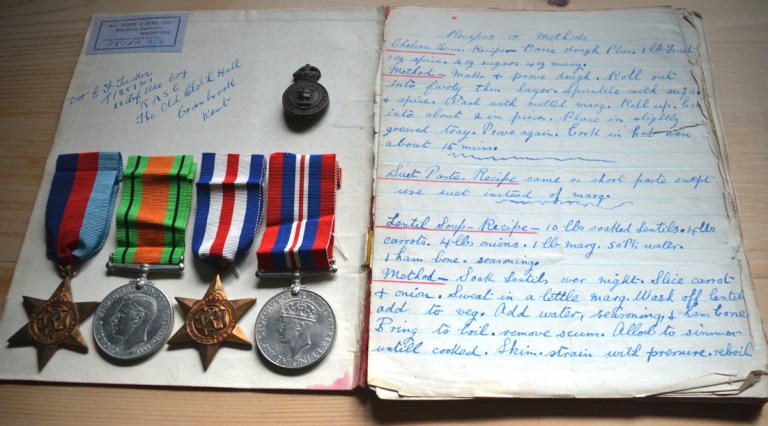 MAIDSTONE
Dvr E. J. Tucker
R.A.S.C
The Old Cloth Hall
Cranbrook
Kent
Recipes & Methods
Chelsea Buns. Recipe - Basic dough Plus. 1 lb Fruit
1 oz spice. 2 oz sugar 4 oz marg.
Method - Make & prove dough. Roll out
into fairly thin layer. Sprinkle with sugar
& spice. Wash with melted marg. Roll up. Cut
into about 2 in pieces. Place in slightly
greased tray. Prove again. Cook in hot oven
about 15 mins.
Suet Paste. Recipe same as short paste except
use suet instead of marg.
Lentil Soup - Recipe - 10 lbs soaked lentils. 4 lbs
carrots. 4 lbs onions. 1 lb marg. 50 Pts water.
1 ham bone. seasoning.
Method - Soak lentils over night. Slice carrot
& onion. Sweat in a little marg. Wash off lentils
add to veg. Add water, seasoning, & ham bone
Bring to boil. remove scum. Allow to simmer
untill cooked. Skim. strain with pressure. reboil